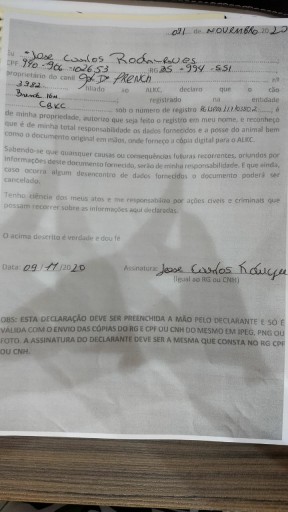 09 de NOVEMBRO 2020
Eu Jose Carlos Rodrigues
CPF RG 25 - 994 - 551
proprietário do canil
filiado ao ALKC, declaro que o cão
registrado na entidade
CBKC sob o número de registro é
de minha propriedade, autorizo que seja feito o registro em meu nome, e reconheço
que é de minha total responsabilidade os dados fornecidos e a posse do animal bem
como o documento original em mãos, onde forneço a cópia digital para o ALKC.
Sabendo-se que quaisquer causas ou consequências futuras recorrentes, oriundos por
informações deste documento fornecido, serão de minha responsabilidade. E que ainda,
caso ocorra algum desencontro de dados fornecidos o documento poderá ser
cancelado.
Tenho ciência dos meus atos e me responsabilizo por ações civeis e criminais que
possam recorrer sobre as informações aqui declaradas.
O acima descrito é verdade e dou fé
Data: 09/11/2020 Assinatura: Jose Carlos Rodrigue
(Igual ao RG ou CNH)
OBS: ESTA DECLARAÇÃO DEVE SER PREENCHIDA A MÃO PELO DECLARANTE E SÓ É
VALIDA COM O ENVIO DAS CÓPIAS DO RG E CPF OU CNH DO MESMO EM JPEG, PNG OU
FOTO. A ASSINATURA DO DECLARANTE DEVE SER A MESMA QUE CONSTA NO RG CPF
OU CNH.